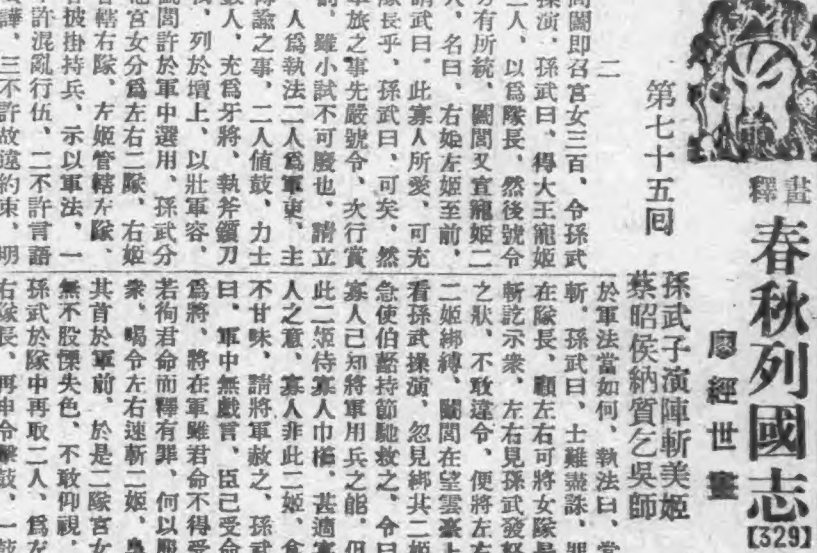 釋畫
春秋列國志
【329】
廖經世畫
第七十五回
孫武子演陣斬美姬
蔡昭侯納質乞吳師
二
闔閭即召宮女三百、令孫武
操演、孫武曰、得大王寵姬
二人、以爲隊長、然後號令
方有所統、闔閭又宣寵姬二
人、名曰、右姬左姬至前、
謂武曰、此寡人所愛、可充
隊長乎、孫武曰、可矣、然
軍旅之事先嚴號令、次行賞
罰、雖小試不可廢也、請立
一人爲執法二人爲軍吏、主
傳諭之事、二人値鼓、力士
數人、充爲牙將、執斧鑕刀
戟、列於壇上、以壯軍容、
闔閭許於軍中選用、孫武分
宮女分爲左右二隊、右姬
管轄右隊、左姬管轄左隊、
披掛持兵、示以軍法、一
不許混亂行伍、二不許言語
譁、三不許故違約束、明
於軍法當如何、執法曰、當
斬、孫武曰、士難盡誅、罪
在隊長、顧左右可將女隊長
斬訖示衆、左右見孫武發怒
之狀、不敢違令、便將左右
二姬綁縛、闔閭在望雲臺上
看孫武操演、忽見綁其二姬
急使伯嚭持節馳救之、令曰
寡人已知將軍用兵之能、但
此二姬侍寡人巾櫛、甚適寡
人之意、寡人非此二姬、食
不甘味、請將軍赦之、孫武
曰、軍中無戲言、臣已受命
爲將、將在軍雖君命不得受
若徇君命而釋有罪、何以服
衆、喝令左右速斬二姬、梟
其首於軍前、於是二隊宮女
無不股慄失色、不敢仰視、
孫武於隊中再取二人、爲左
右隊長、再申令鼙鼓、一鼓